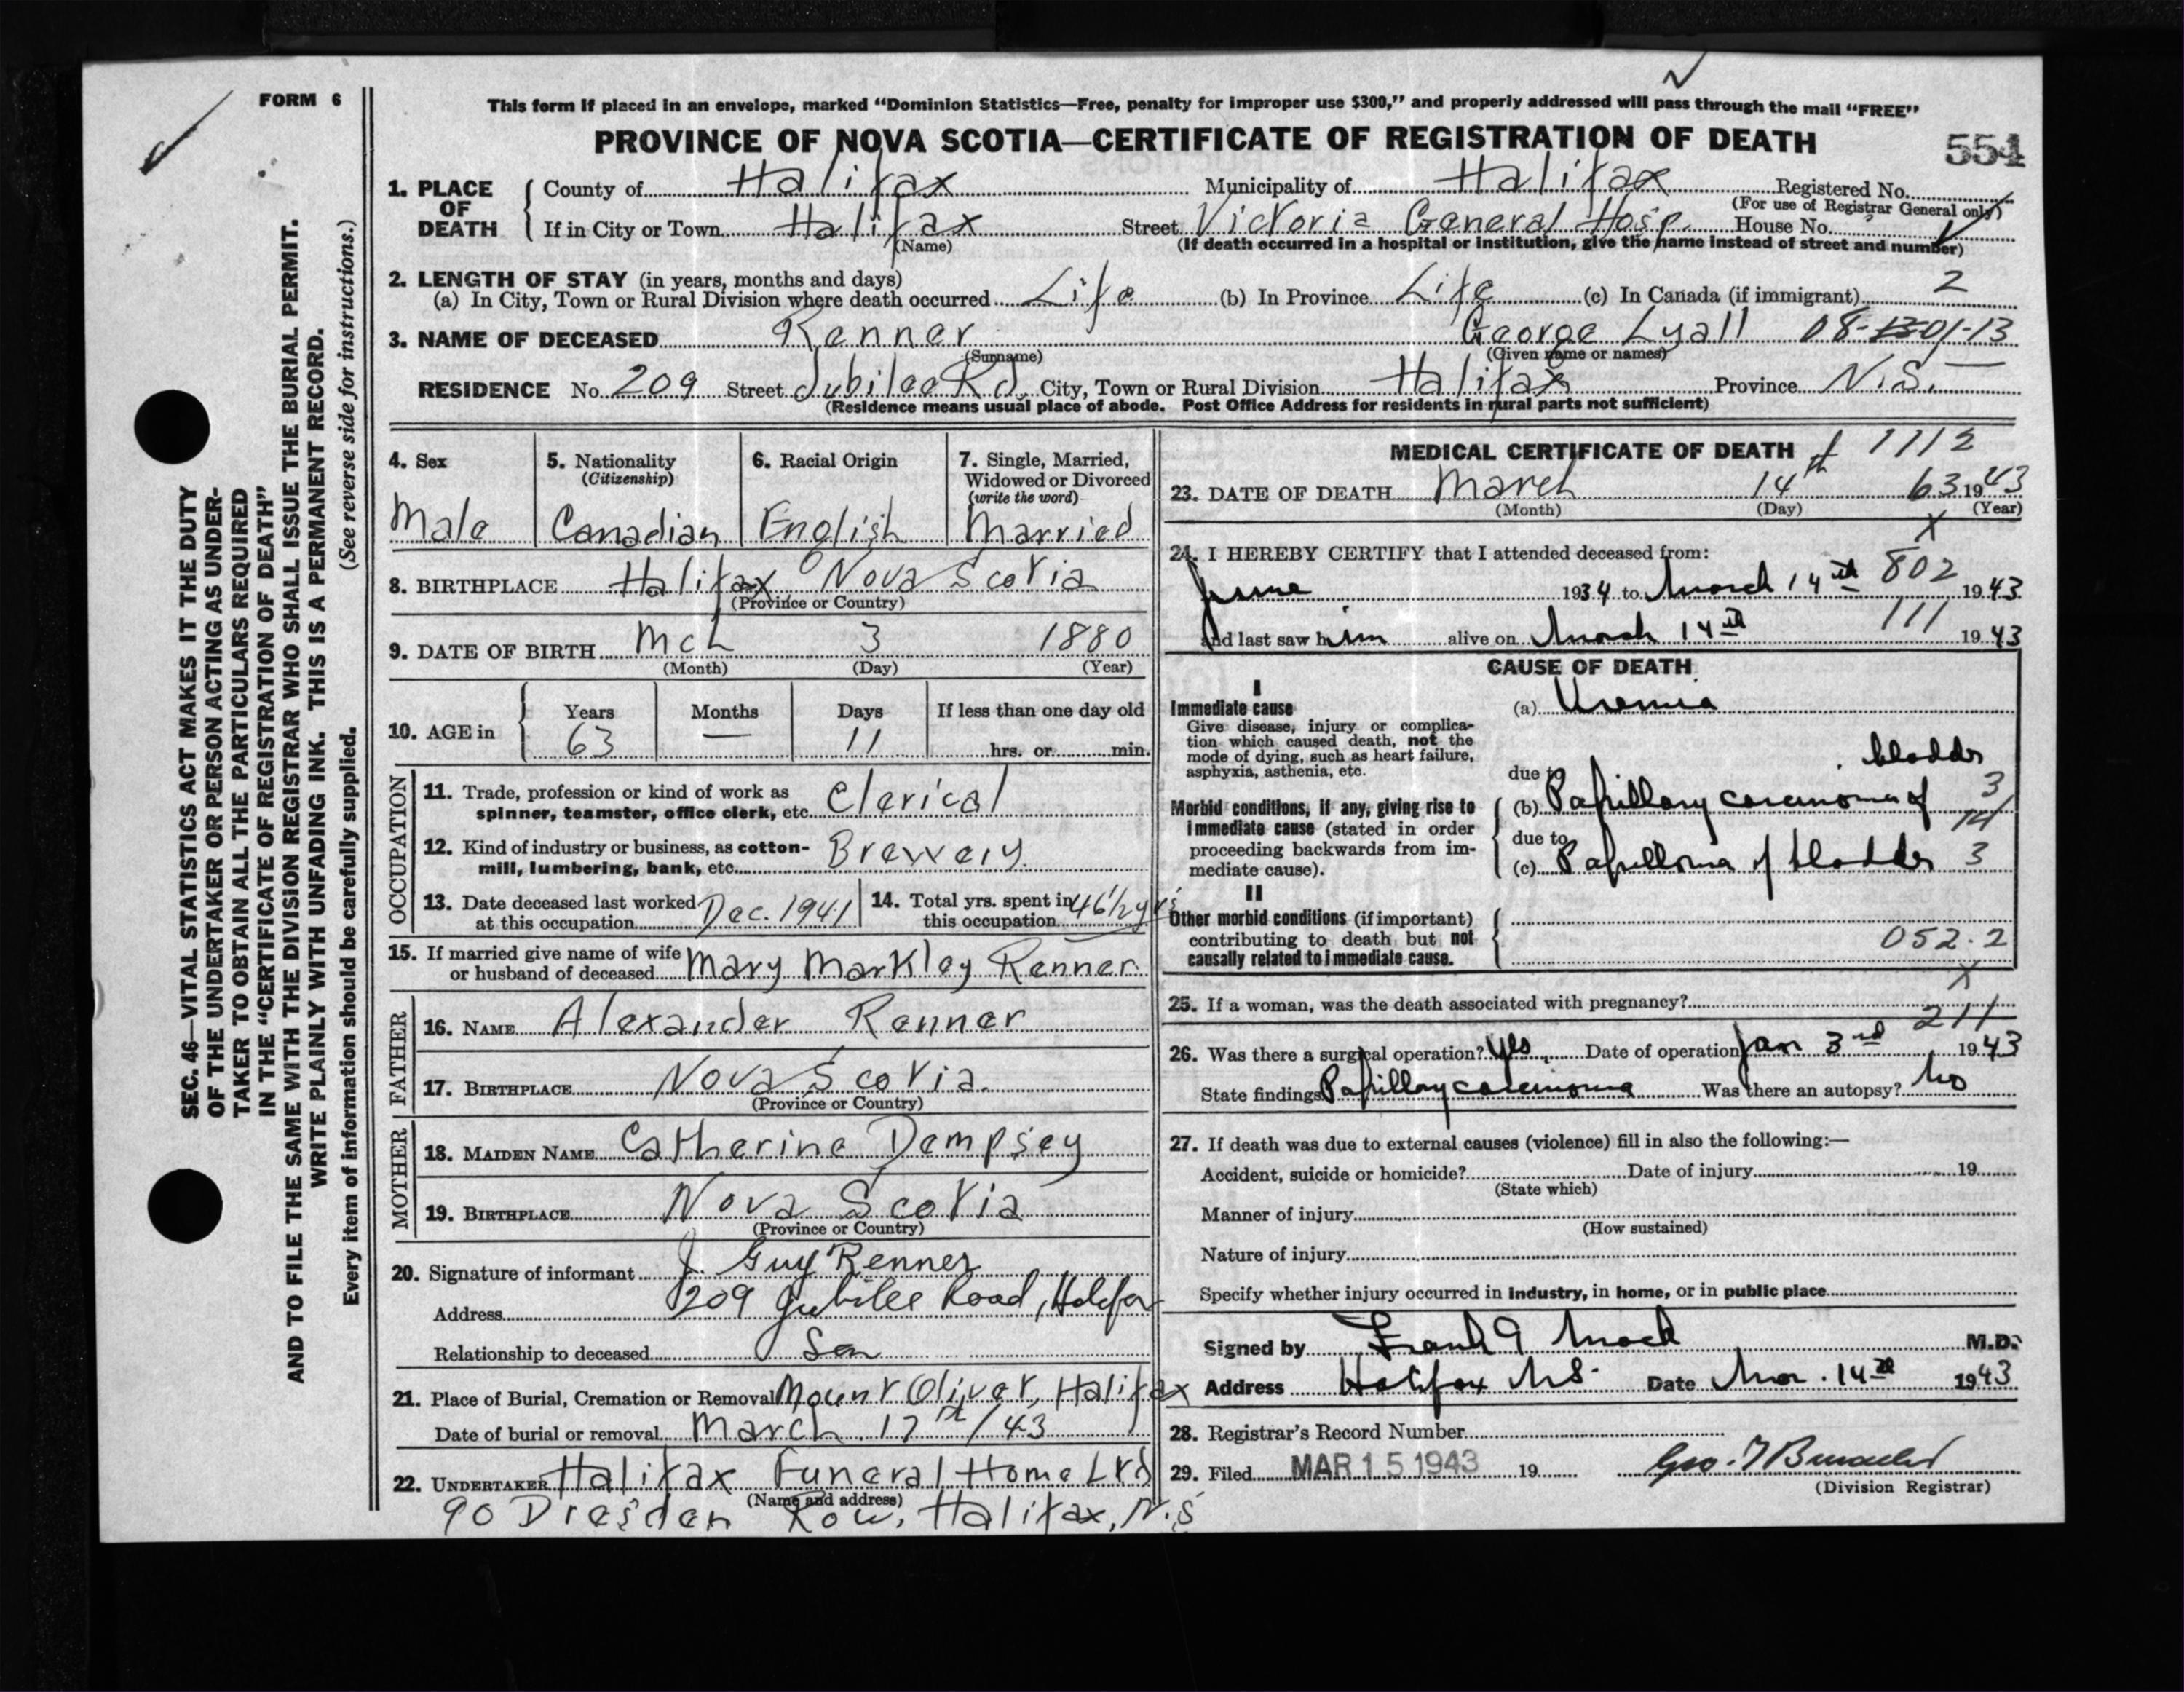 FORM 6
This form if placed in an envelope, marked “Dominion Statistics—Free, penalty for improper use $300,” and properly addressed will pass through the mail “FREE”
PROVINCE OF NOVA SCOTIA—CERTIFICATE OF REGISTRATION OF DEATH
554
1. PLACE OF DEATH
County of Halifax Municipality of Halifax Registered No.
(For use of Registrar General only)
If in City or Town Halifax Street Victoria General Hosp. House No.
(Name) (If death occurred in a hospital or institution, give the name instead of street and number)
2. LENGTH OF STAY (in years, months and days)
(a) In City, Town or Rural Division where death occurred Life (b) In Province Life (c) In Canada (if immigrant) 2
3. NAME OF DECEASED Renner George Lyall 08-13-01-13
(Surname) (Given name or names)
RESIDENCE No. 209 Street Jubilee Rd. City, Town or Rural Division Halifax Province N.S.
(Residence means usual place of abode. Post Office Address for residents in rural parts not sufficient)
SEC. 46—VITAL STATISTICS ACT MAKES IT THE DUTY
OF THE UNDERTAKER OR PERSON ACTING AS UNDER-
TAKER TO OBTAIN ALL THE PARTICULARS REQUIRED
IN THE “CERTIFICATE OF REGISTRATION OF DEATH”
AND TO FILE THE SAME WITH THE DIVISION REGISTRAR WHO SHALL ISSUE THE BURIAL PERMIT.
WRITE PLAINLY WITH UNFADING INK. THIS IS A PERMANENT RECORD.
Every item of information should be carefully supplied. (See reverse side for instructions.)
4. Sex
Male
5. Nationality
(Citizenship)
Canadian
6. Racial Origin
English
7. Single, Married,
Widowed or Divorced
(write the word)
Married
8. BIRTHPLACE Halifax Nova Scotia
(Province or Country)
9. DATE OF BIRTH Mch 3 1880
(Month) (Day) (Year)
10. AGE in Years Months Days If less than one day old
63 — 11 hrs. or min.
OCCUPATION
11. Trade, profession or kind of work as
spinner, teamster, office clerk, etc. Clerical
12. Kind of industry or business, as cotton-
mill, lumbering, bank, etc. Brewery
13. Date deceased last worked
at this occupation Dec. 1941
14. Total yrs. spent in
this occupation 46½ yrs
15. If married give name of wife
or husband of deceased Mary Markley Renner
FATHER
16. NAME Alexander Renner
17. BIRTHPLACE Nova Scotia
(Province or Country)
MOTHER
18. MAIDEN NAME Catherine Dempsey
19. BIRTHPLACE Nova Scotia
(Province or Country)
20. Signature of informant J. Guy Renner
Address 209 Jubilee Road, Halifax
Relationship to deceased Son
21. Place of Burial, Cremation or Removal Mount Olivet, Halifax
Date of burial or removal March 17th/43
22. UNDERTAKER Halifax Funeral Home Ltd
(Name and address)
90 Dresden Row, Halifax, N.S
MEDICAL CERTIFICATE OF DEATH 1112
23. DATE OF DEATH March 14th 63 1943
(Month) (Day) (Year)
X
24. I HEREBY CERTIFY that I attended deceased from:
June 1934 to March 14th 802 1943
and last saw him alive on March 14th 111 1943
CAUSE OF DEATH
I
Immediate cause
Give disease, injury or complica-
tion which caused death, not the
mode of dying, such as heart failure,
asphyxia, asthenia, etc.
(a) Uremia
due to
Morbid conditions, if any, giving rise to
immediate cause (stated in order
proceeding backwards from im-
mediate cause).
(b) Papillary carcinoma of bladder 3
due to
(c) Papilloma of bladder 3
II
Other morbid conditions (if important)
contributing to death but not
causally related to immediate cause.
052.2
X
25. If a woman, was the death associated with pregnancy?
211
26. Was there a surgical operation? Yes Date of operation Jan 3rd 1943
State findings Papillary carcinoma Was there an autopsy? No
27. If death was due to external causes (violence) fill in also the following:—
Accident, suicide or homicide? Date of injury 19
(State which)
Manner of injury
(How sustained)
Nature of injury
Specify whether injury occurred in industry, in home, or in public place
Signed by Frank G Mack M.D.
Address Halifax NS. Date Mar. 14th 1943
28. Registrar's Record Number
29. Filed MAR 15 1943 19
(Division Registrar)